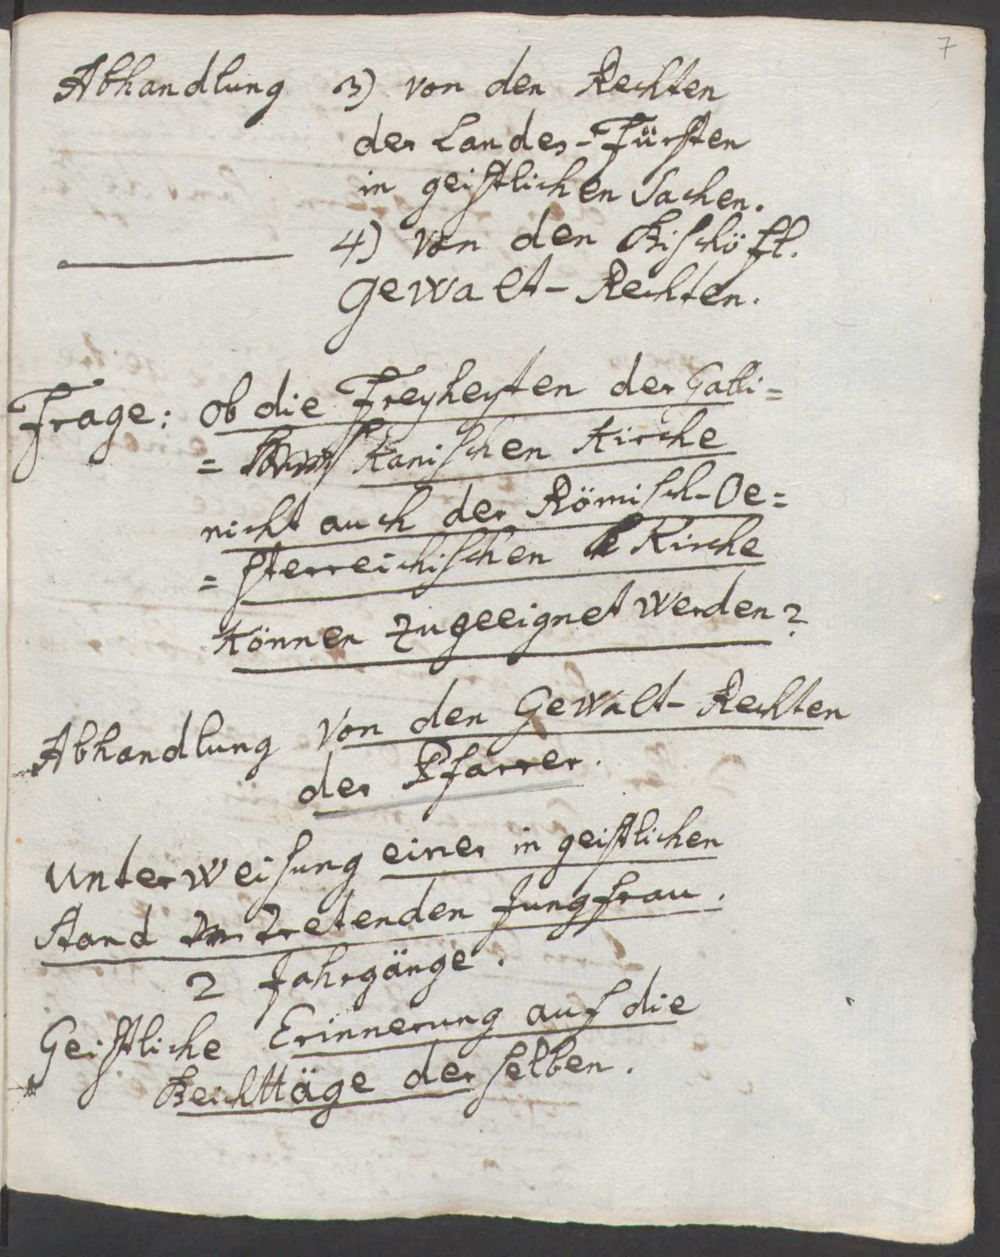 7
Abhandlung 3) von den Rechten
der Landes-Fürsten
in geistlichen Sachen.
4) von den Bischöfl.
Gewalt-Rechten.
Frage: ob die Freyheyten der Galli=
= kanischen Kirche
nicht auch der Römisch-Oe=
= sterreichischen Kirche
können zugeeignet werden?
Abhandlung von den Gewalt-Rechten
der Pfarrer.
Unterweisung einer in geistlichen
Stand tretenden Jungfrau.
2 Jahrgänge.
Geistliche Erinnerung auf die
Beichttäge derselben.